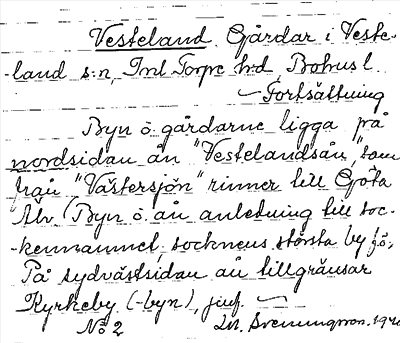 Vesteland Gårdar i Veste-
-land s:n, Inl. Torpe h:d, Bohusl.
— Fortsättning
Byn o. gårdarne ligga på
nordsidau ån "Vestelandsån", som
från "Västersjön" rinner till Göta
Älv. Byn o. ån anledning till soc-
-kennamnet, socknens största by fö.
På sydvästsidan ån tillgränsar
Kyrkeby (-byn), jmf. —
No 2 Svenningsson. 19